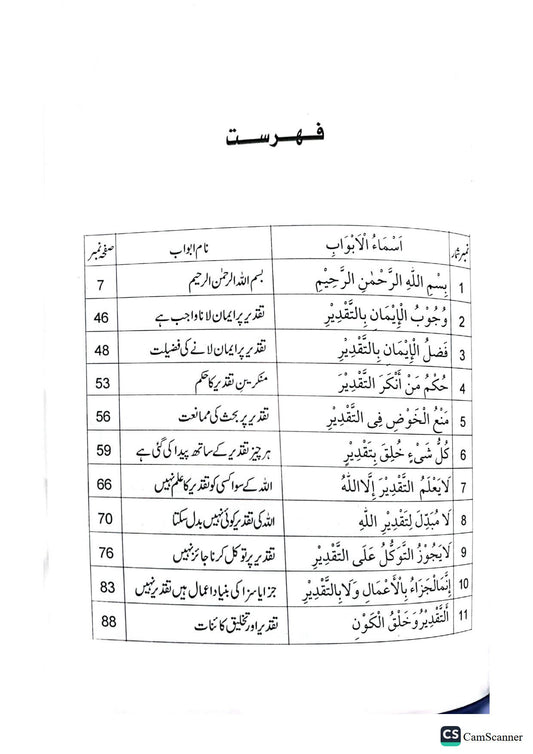 فہرست
نمبر شمار اَسْمَاءُ الْاَبْوَابِ نام ابواب صفحہ نمبر
1 بِسْمِ اللّٰهِ الرَّحْمٰنِ الرَّحِيْمِ بسم اللہ الرحمٰن الرحیم 7
2 وُجُوْبُ الْإِيْمَانِ بِالتَّقْدِيْرِ تقدیر پر ایمان لانا واجب ہے 46
3 فَضْلُ الْإِيْمَانِ بِالتَّقْدِيْرِ تقدیر پر ایمان لانے کی فضیلت 48
4 حُكْمُ مَنْ أَنْكَرَ التَّقْدِيْرَ منکرین تقدیر کا حکم 53
5 مَنْعُ الْخَوْضِ فِى التَّقْدِيْرِ تقدیر پر بحث کی ممانعت 56
6 كُلُّ شَىْءٍ خُلِقَ بِتَقْدِيْرٍ ہر چیز تقدیر کے ساتھ پیدا کی گئی ہے 59
7 لَا يَعْلَمُ التَّقْدِيْرَ إِلَّا اللّٰهُ اللہ کے سوا کسی کو تقدیر کا علم نہیں 66
8 لَا مُبَدِّلَ لِتَقْدِيْرِ اللّٰهِ اللہ کی تقدیر کوئی نہیں بدل سکتا 70
9 لَا يَجُوْزُ التَّوَكُّلُ عَلَى التَّقْدِيْرِ تقدیر پر توکل کرنا جائز نہیں 76
10 إِنَّمَا الْجَزَاءُ بِالْأَعْمَالِ وَلَا بِالتَّقْدِيْرِ جزا یا سزا کی بنیاد اعمال ہیں تقدیر نہیں 83
11 اَلتَّقْدِيْرُ وَخَلْقُ الْكَوْنِ تقدیر اور تخلیق کائنات 88
CS CamScanner